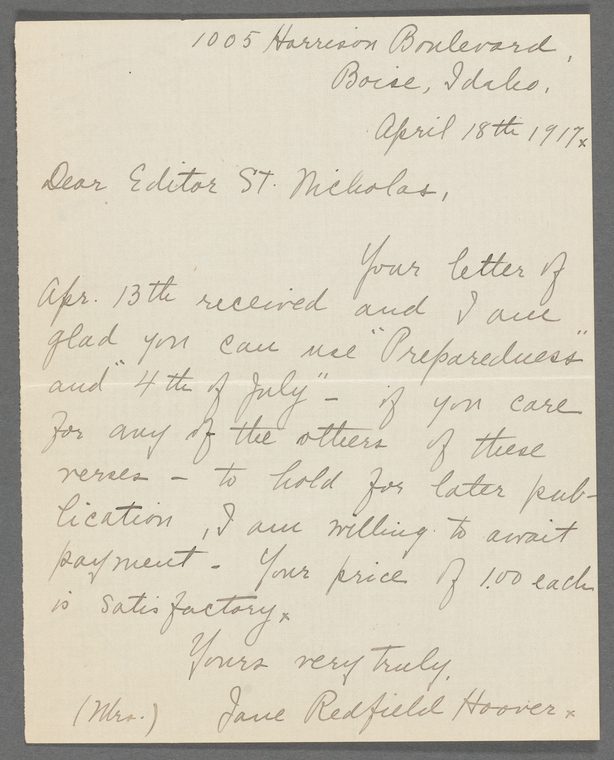 1005 Harrison Boulevard,
Boise, Idaho.
April 18th 1917x
Dear Editor St. Nicholas,
Your letter of
Apr. 13th received and I am
glad you can use "Preparedness"
and "4th of July" – if you care
for any of the others of these
verses – to hold for later pub-
lication, I am willing to await
payment. Your price of 1.00 each
is satisfactory.x
Yours very truly,
(Mrs.) Jane Redfield Hoover.x